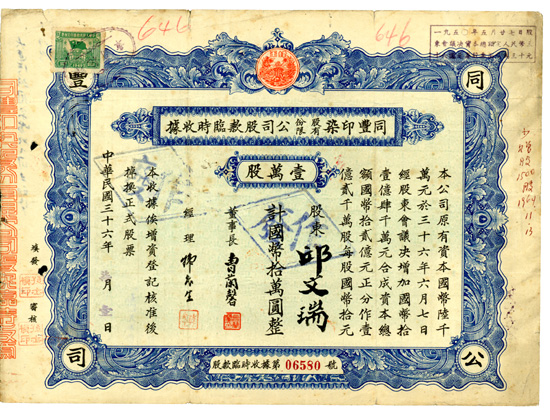 646
646
一九五〇年五月廿七日股
同
豐
同豐印染股份有限公司股款臨時收據
壹萬股
本公司原有資本國幣陸千
萬元於三十六年六月七日
經股東會議決增加國幣拾
壹億肆千萬元合成資本總
額國幣拾貳億元正分作壹
億貳千萬股每股國幣拾元
股東 邱文瑞
計國幣拾萬圓整
董事長 曹蘭馨
經理
本收據俟增資登記核准後
掉換正式股票
中華民國三十六年 月壹日
填發
審核
公
司
股款臨時收據第 06580 號